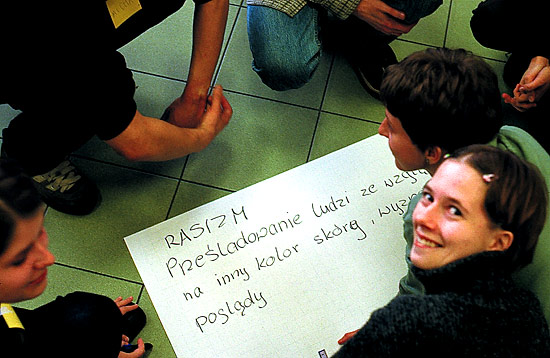 RASIZM
Prześladowanie ludzi ze wzglę
na inny kolor skóry, wyzn
poglądy